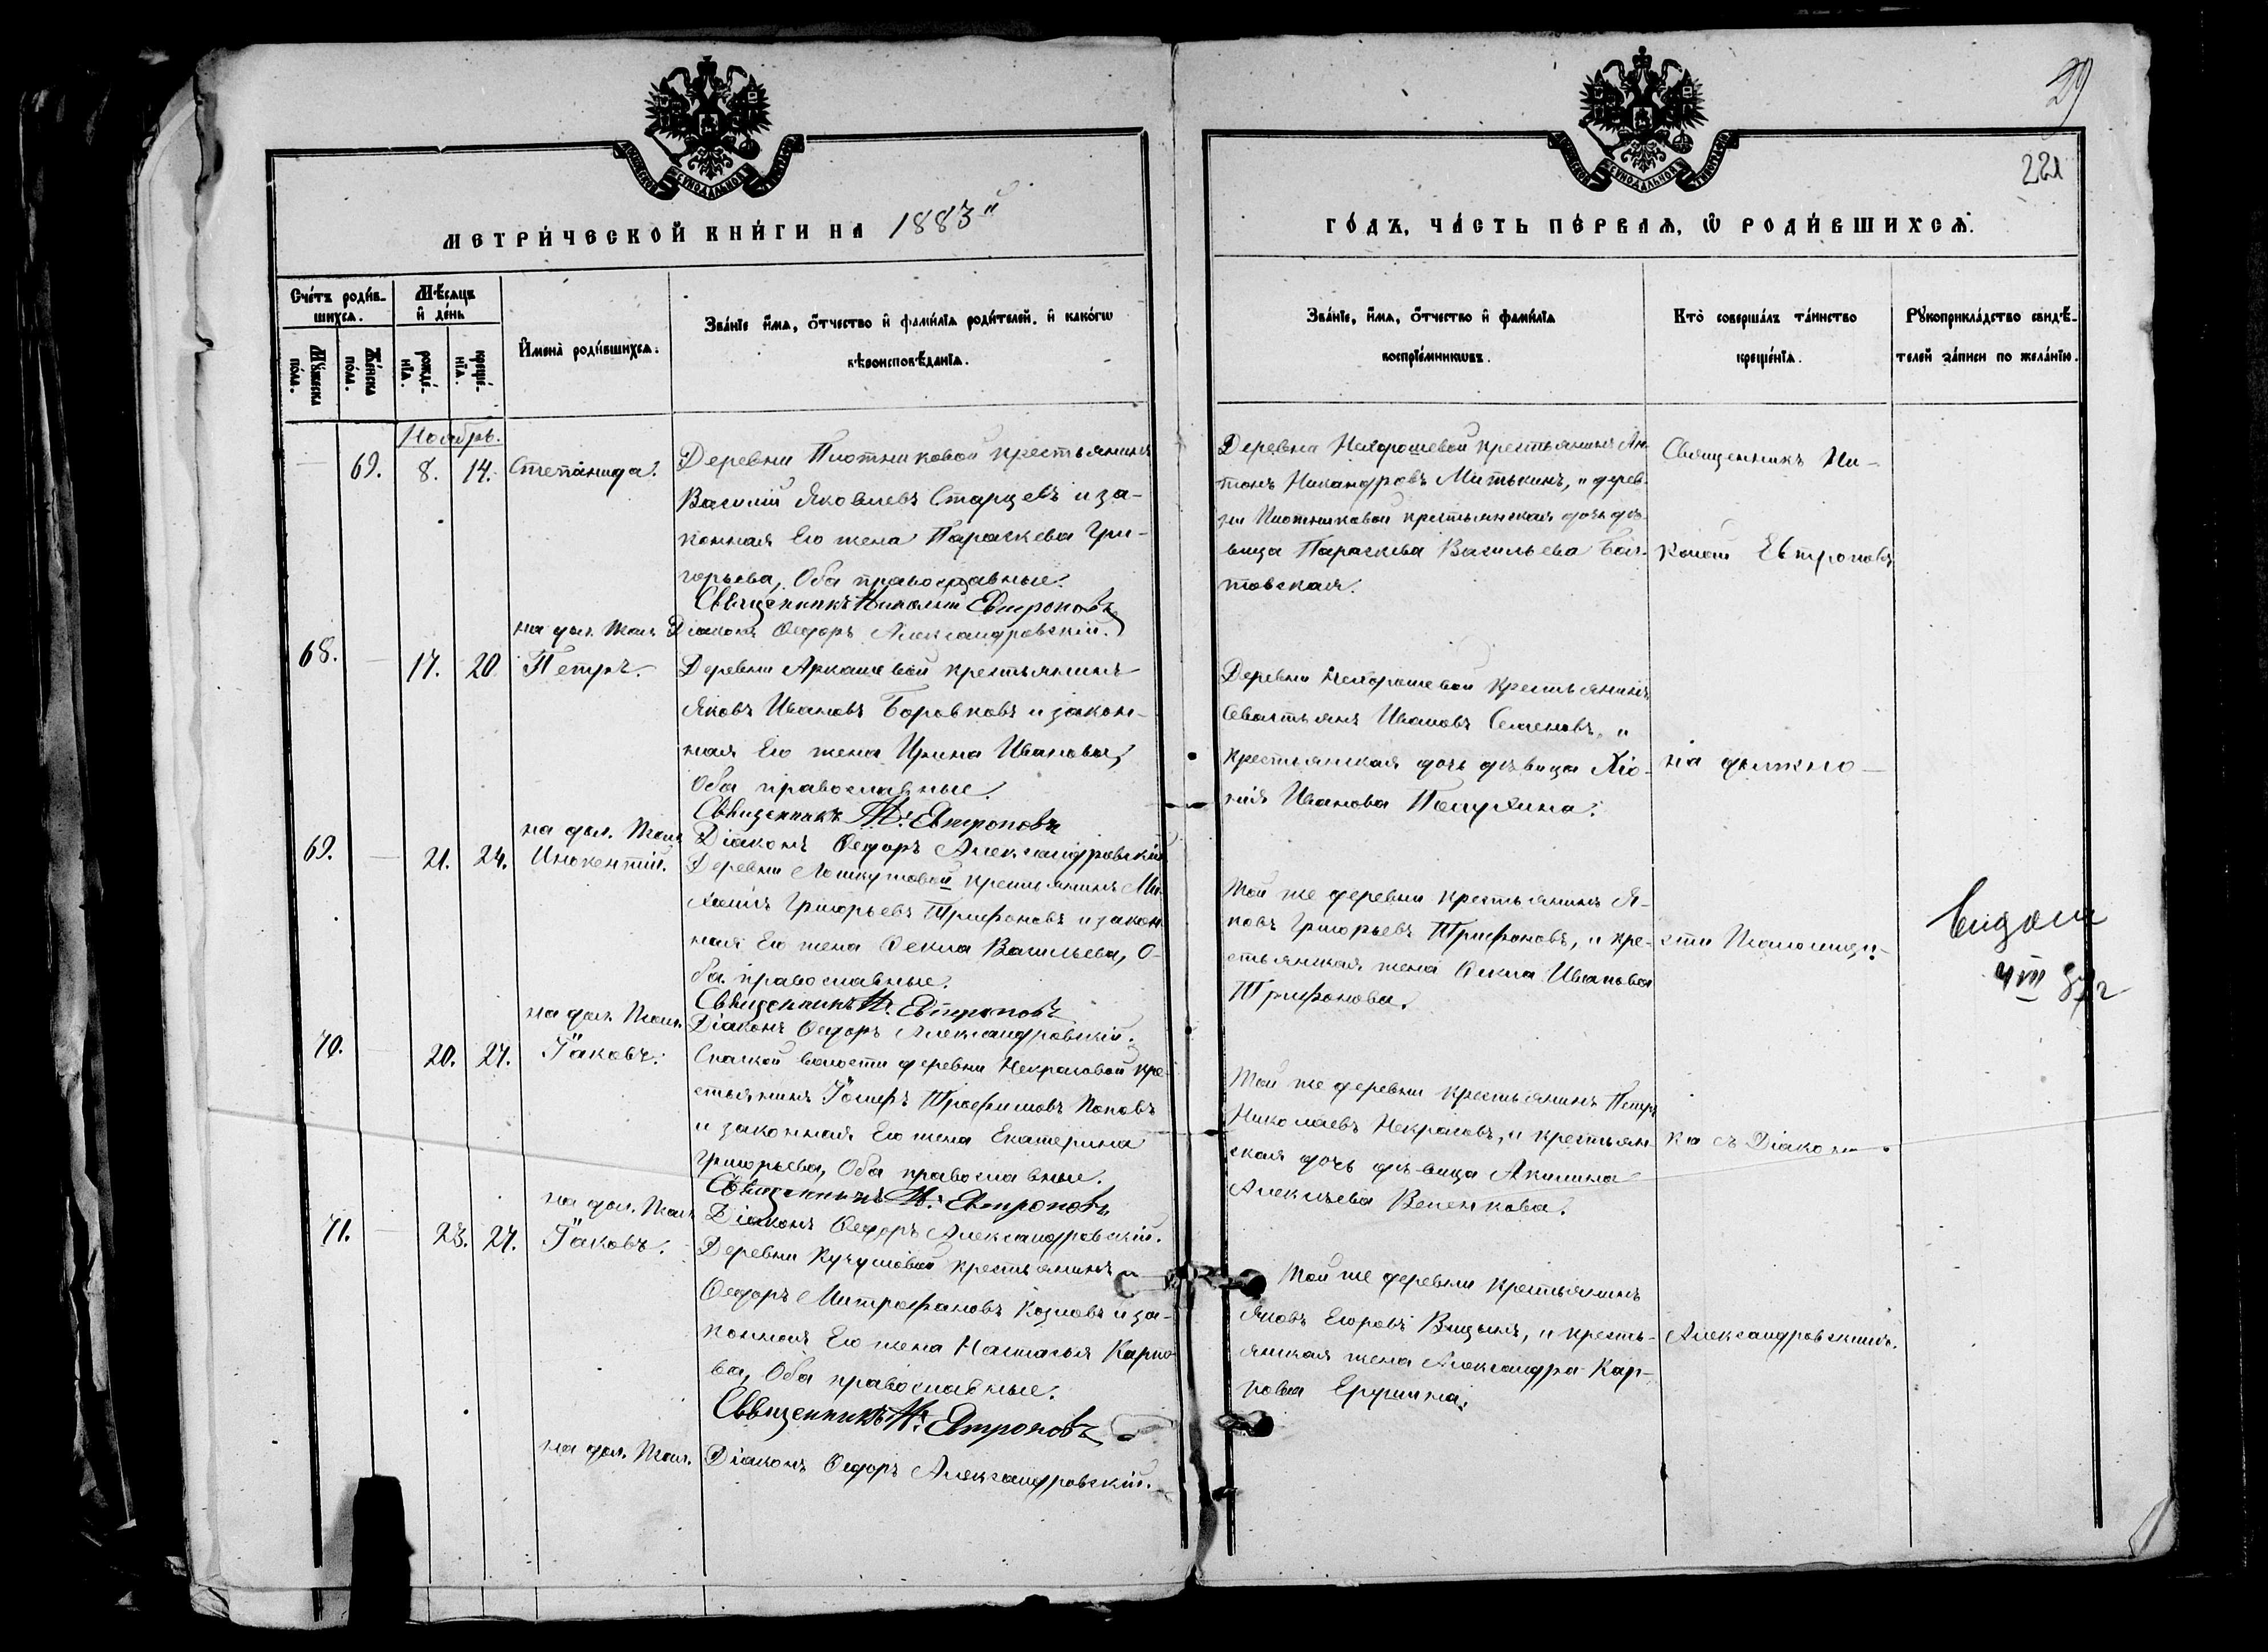 29
221
МОСКОВСКОЙ СУНОДАЛЬНОЙ ТИПОГРАФІИ
МОСКОВСКОЙ СУНОДАЛЬНОЙ ТИПОГРАФІИ
МЕТРИ́ЧЕСКОЙ КНИ́ГИ НА 1883й
ГО́ДЪ, ЧА́СТЬ ПЕ́РВАѦ, Ѡ РОДИ́ВШИХСѦ.
Сче́тъ роди́в-
шихсѧ.
Мѣ́сѧцъ
и҆ де́нь
Мꙋ́жеска
по́ла.
Же́нска
по́ла.
рожде́-
нїѧ.
креще́-
нїѧ.
И҆мена̀ роди́вшихсѧ.
Зва́нїе и҆́мѧ, ѻ҆́тчество и҆ фами́лїѧ роди́телей, и҆ како́гѡ
вѣроисповѣ́данїѧ.
Зва́нїе, и҆́мѧ, ѻ҆́тчество и҆ фами́лїѧ
воспрїе́мникѡвъ.
Кто̀ соверша́лъ та́инство
креще́нїѧ.
Рꙋкоприкла́дство свидѣ́-
телей за́писи по жела́нїю.
Ноябрь.
69. 8. 14. Степанида.
Деревни Плотниковой крестьянинъ
Василій Яковлевъ Старцевъ и за-
конная Его жена Параскева Гри-
горьева, Оба православные.
Священникъ Николай Евтроповъ
на дол. Псал. Діаконъ Ѳедоръ Александровскій.
Деревни Нехорошевой крестьянинъ Ан-
тонъ Никандровъ Митькинъ, и дерев-
ни Плотниковой крестьянская дочь дѣ-
вица Параскева Васильева
товская.
Священникъ Ни-
колай Евтроповъ
68. 17. 20 Петръ.
Деревни Аркашевой крестьянинъ
Яковъ Ивановъ Боровковъ и закон-
ная Его жена Ирина Иванова,
Оба православные.
Священникъ Н. Евтроповъ
на дол. Псал. Діаконъ Ѳедоръ Александровскій
Деревни Нехорошевой Крестьянинъ
Севастьянъ Ивановъ Семеновъ, и
крестьянская дочь дѣвица Хіо-
нія Иванова Полухина.
на должно-
69. 21. 24. Инокентій.
Деревни крестьянинъ Ми-
хаилъ Григорьевъ Трифоновъ и закон-
ная Его жена Ѳекла Васильева, О-
ба православные.
Священникъ Н. Евтроповъ
на дол. Псал. Діаконъ Ѳедоръ Александровскій.
Той же деревни крестьянинъ Я-
ковъ Григорьевъ Трифоновъ, и кре-
стьянская жена Ѳекла Иванова
Трифонова.
сти Псаломщи-
4 VIII
70. 20. 27. Іаковъ.
волости деревни Некрасовой кре-
стьянинъ Іосифъ Трофимовъ Поповъ
и законная Его жена Екатерина
Григорьева, Оба православные.
Священникъ Н. Евтроповъ
на дол. Псал. Діаконъ Ѳедоръ Александровскій.
Той же деревни крестьянинъ Петръ
Николаевъ Некрасовъ, и крестьян-
ская дочь дѣвица Акилина
Алексѣева
ка съ Діаконо
71. 23. 27. Іаковъ.
Деревни крестьянинъ
Ѳедоръ Митрофановъ Козловъ и за-
конная Его жена Настасья Карпо-
ва, Оба православные.
Священникъ Н. Евтроповъ
на дол. Псал. Діаконъ Ѳедоръ Александровскій.
Той же деревни крестьянинъ
Яковъ Егоровъ и кресть-
янская жена Александра Кар-
пова
Александровскимъ.